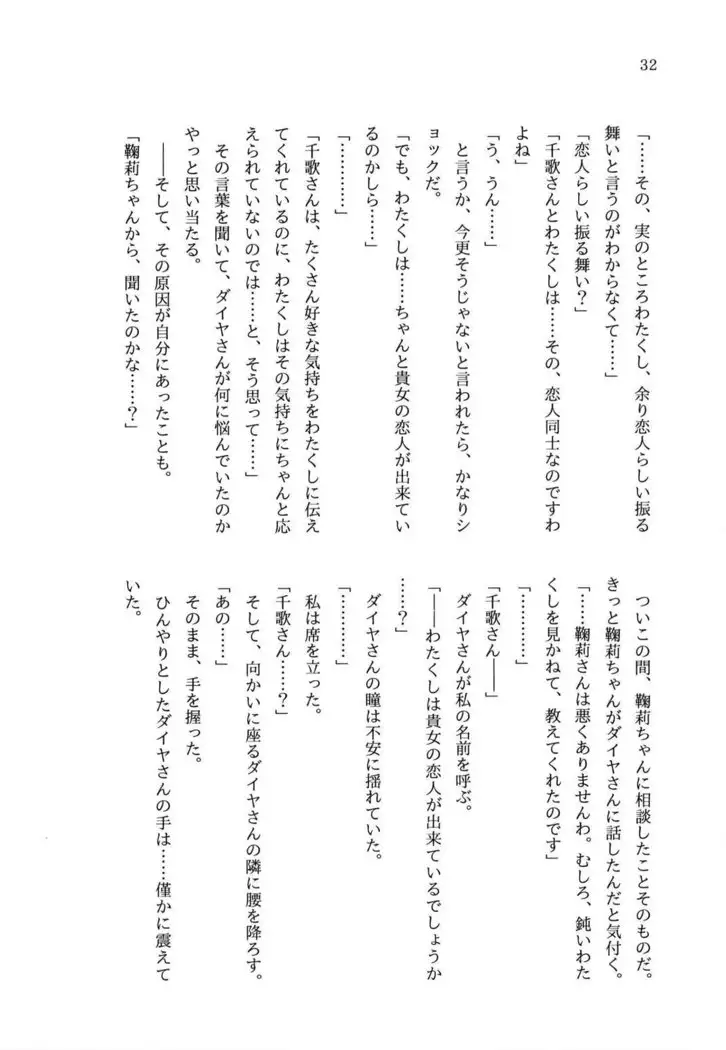 32
「……その、実のところわたくし、余り恋人らしい振る
舞いと言うのがわからなくて……」
「恋人らしい振る舞い？」
「千歌さんとわたくしは……その、恋人同士なのですわ
よね」
「う、うん……」
と言うか、今更そうじゃないと言われたら、かなりシ
ョックだ。
「でも、わたくしは……ちゃんと貴女の恋人が出来てい
るのかしら……」
「…………」
「千歌さんは、たくさん好きな気持ちをわたくしに伝え
てくれているのに、わたくしはその気持ちにちゃんと応
えられていないのでは……と、そう思って……」
その言葉を聞いて、ダイヤさんが何に悩んでいたのか
やっと思い当たる。
――そして、その原因が自分にあったことも。
「鞠莉ちゃんから、聞いたのかな……？」
ついこの間、鞠莉ちゃんに相談したことそのものだ。
きっと鞠莉ちゃんがダイヤさんに話したんだと気付く。
「……鞠莉さんは悪くありませんわ。むしろ、鈍いわた
くしを見かねて、教えてくれたのです」
「…………」
「千歌さん――」
ダイヤさんが私の名前を呼ぶ。
「――わたくしは貴女の恋人が出来ているでしょうか
……？」
ダイヤさんの瞳は不安に揺れていた。
「…………」
私は席を立った。
「千歌さん……？」
そして、向かいに座るダイヤさんの隣に腰を降ろす。
「あの……」
そのまま、手を握った。
ひんやりとしたダイヤさんの手は……僅かに震えて
いた。